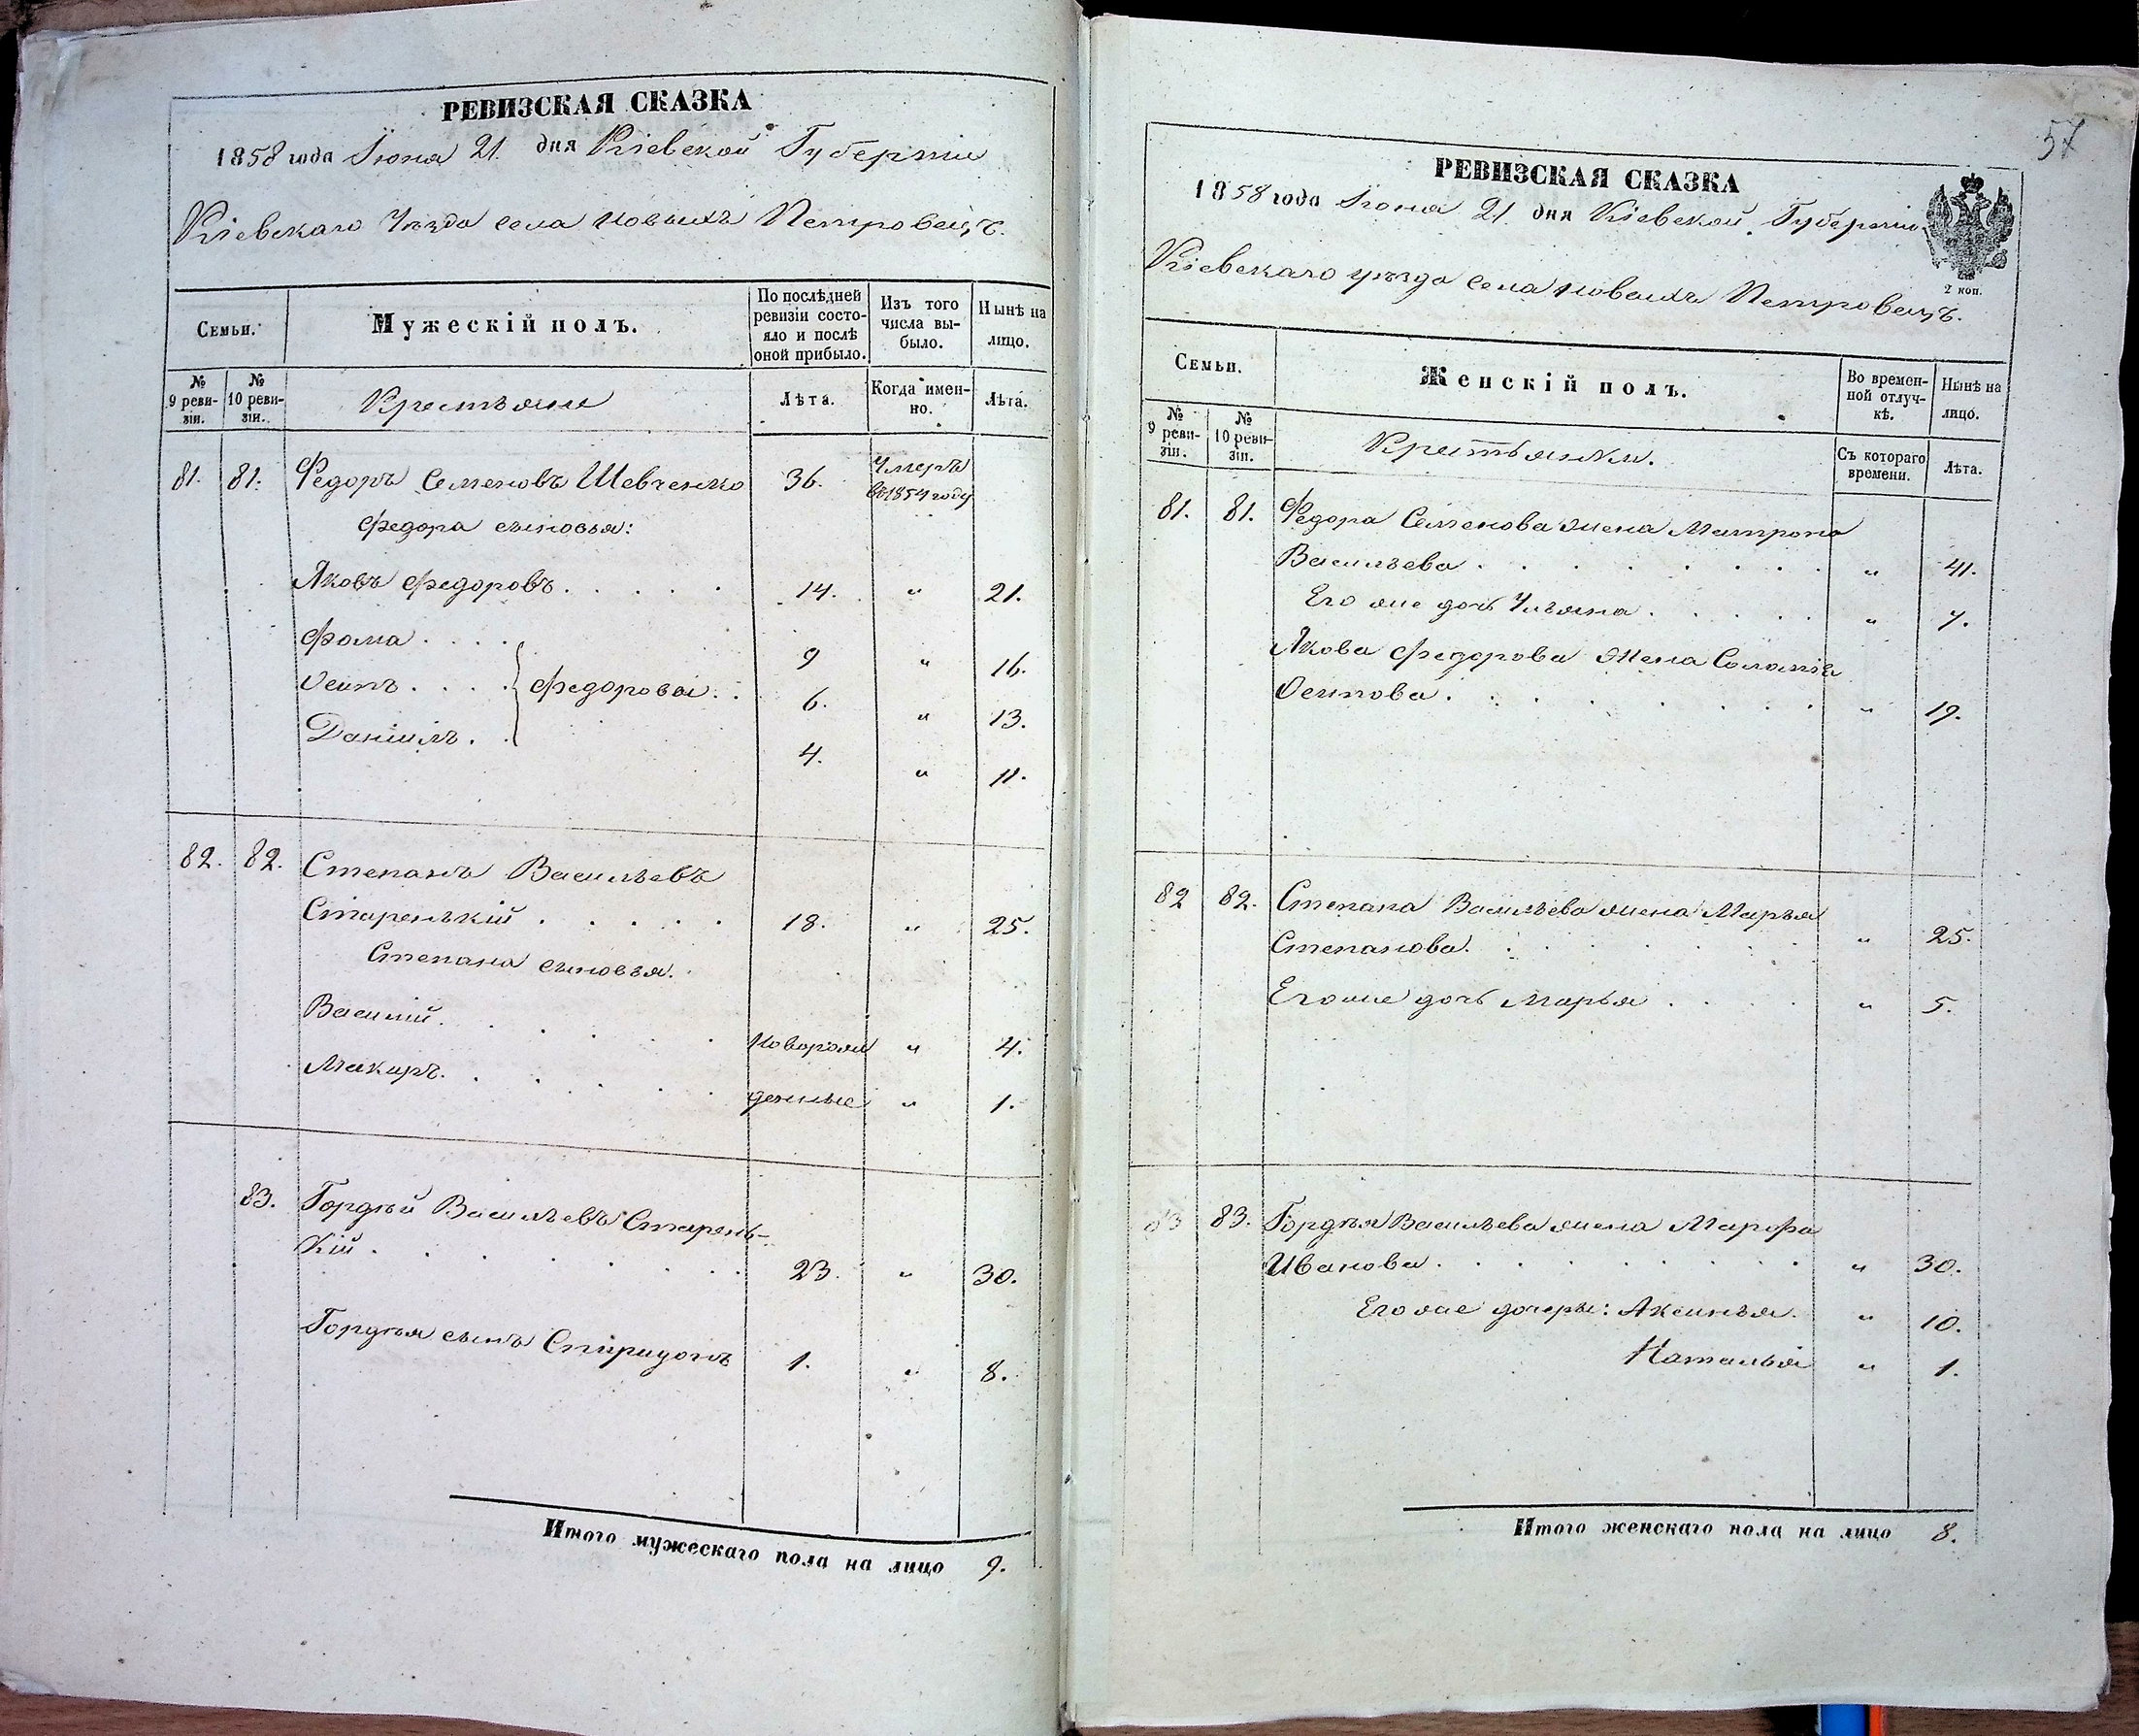 РЕВИЗСКАЯ СКАЗКА
1858 года Іюня 21. дня Кіевской Губерніи
Кіевскаго Уѣзда села Новыхъ Петровецъ.
Семьи.
Мужескій полъ.
По послѣдней ревизіи состояло и послѣ оной прибыло.
Изъ того числа выбыло.
Нынѣ на лицо.
№ 9 ревизіи.
№ 10 ревизіи.
Крестьяне
Лѣта.
Когда именно.
Лѣта.
81. 81. Федоръ Семеновъ Шевченко 36. Умеръ
въ 1854 году
Федора сыновья:
Яковъ Федоровъ . . . . . 14. " 21.
Фома . . . . 9 " 16.
Осипъ . . . . Федоровы . . 6. " 13.
Даніилъ . . 4. " 11.
82. 82. Степанъ Васильевъ
Старенькій . . . . . 18. " 25.
Степана сыновья.
Василій . . . . . . Новорож " 4.
Макаръ . . . . . . денные " 1.
83. Гордѣй Васильевъ Старень-
кій . . . . . . . 23. " 30.
Гордѣя сынъ Спиридонъ 1. " 8.
Итого мужескаго пола на лицо 9.
57
РЕВИЗСКАЯ СКАЗКА
1858 года Іюня 21. дня Кіевской Губерніи
2 коп.
Кіевскаго уѣзда села Новыхъ Петровецъ.
Семьи.
Женскій полъ.
Во временной отлучкѣ.
Нынѣ на лицо.
№ 9 ревизіи.
№ 10 ревизіи.
Крестьянки.
Съ котораго времени.
Лѣта.
81. 81. Федора Семенова жена Матрона
Васильева . . . . . . . . " 41.
Его же дочь Ульяна . . . . . " 7.
Якова Федорова жена Соломія
Осипова . . . . . . . . " 19.
82 82. Степана Васильева жена Марья
Степанова . . . . . . . " 25.
Его же дочь Марья . . . . " 5.
83 83. Гордѣя Васильева жена Марфа
Иванова . . . . . . . . . " 30.
Его же дочери: Аксинья . " 10.
Наталья " 1.
Итого женскаго пола на лицо 8.